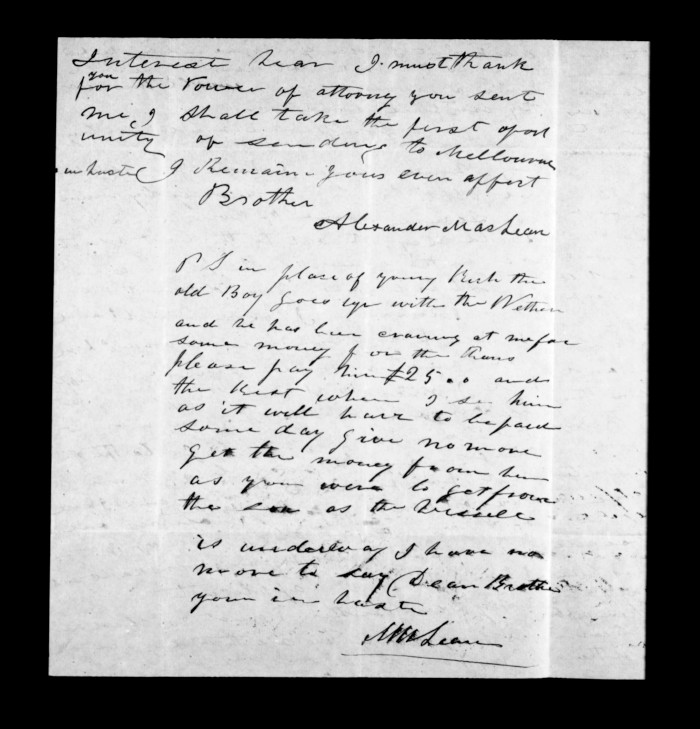 Interest hear I must thank
you
for the Power of attorney you sent
me, I shall take the first oport
unity of sending to Melbourne
in haste I Remain yours ever affect
Brother
Alexander MacLean
P S in place of young the
old Boy goes up with the Wethers
and he has been craving at me for
some money for the Rams
please pay him £25.. and
the Rest when I see him
as it will have to be paid
some day give no more
get the money from him
as you were to get from
the son as the vessele
is underway I have no
more to say (Dear Brother
your in haste
McLean